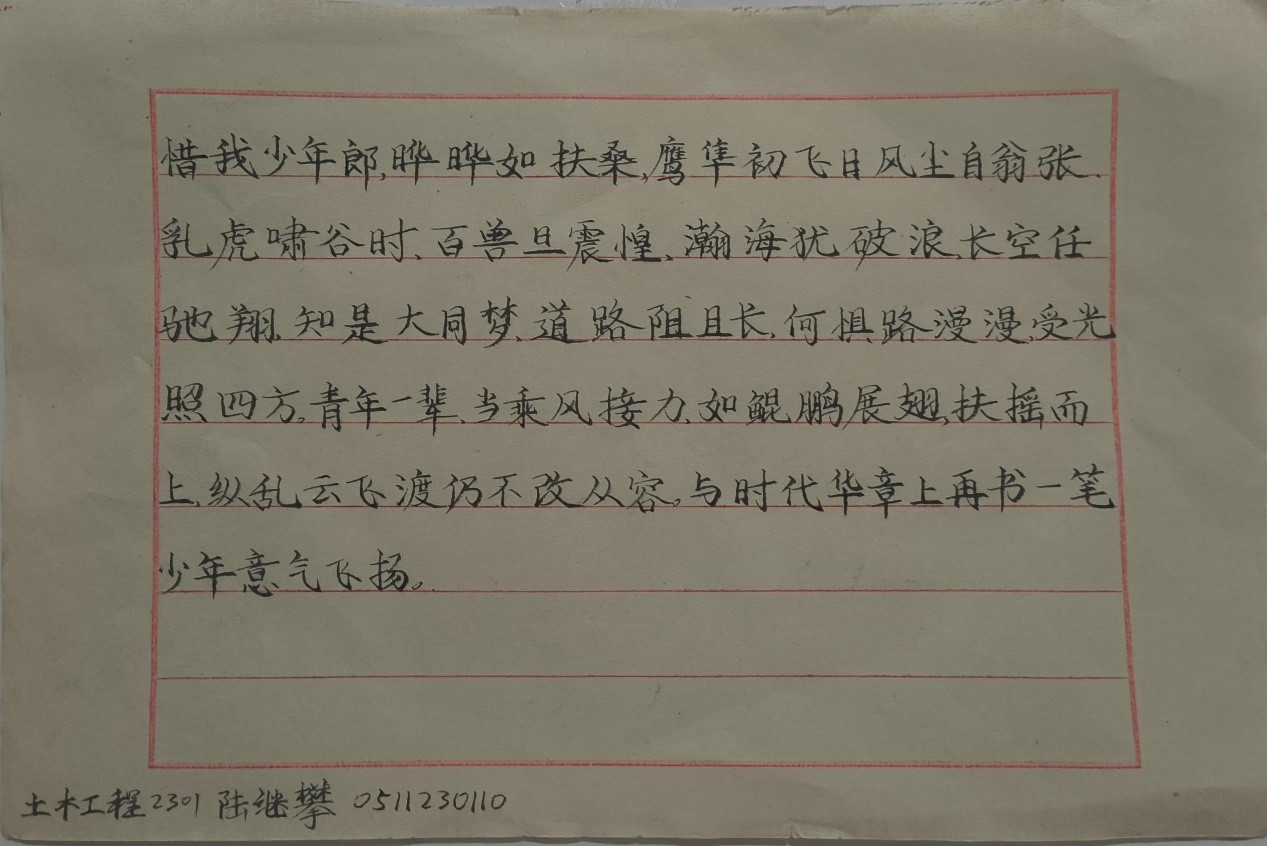 惜我少年郎,晔晔如扶桑,鹰隼初飞日风尘自翕张.
乳虎啸谷时、百兽旦震惶、瀚海犹破浪、长空任
驰翔、知是大同梦、道路阻且长、何惧路漫漫、受光
照四方。青年一辈、当乘风接力、如鲲鹏展翅,扶摇而
上、纵乱云飞渡仍不改从容。与时代华章上再书一笔
少年意气飞扬。
土木工程2301 陆继攀 0511230110